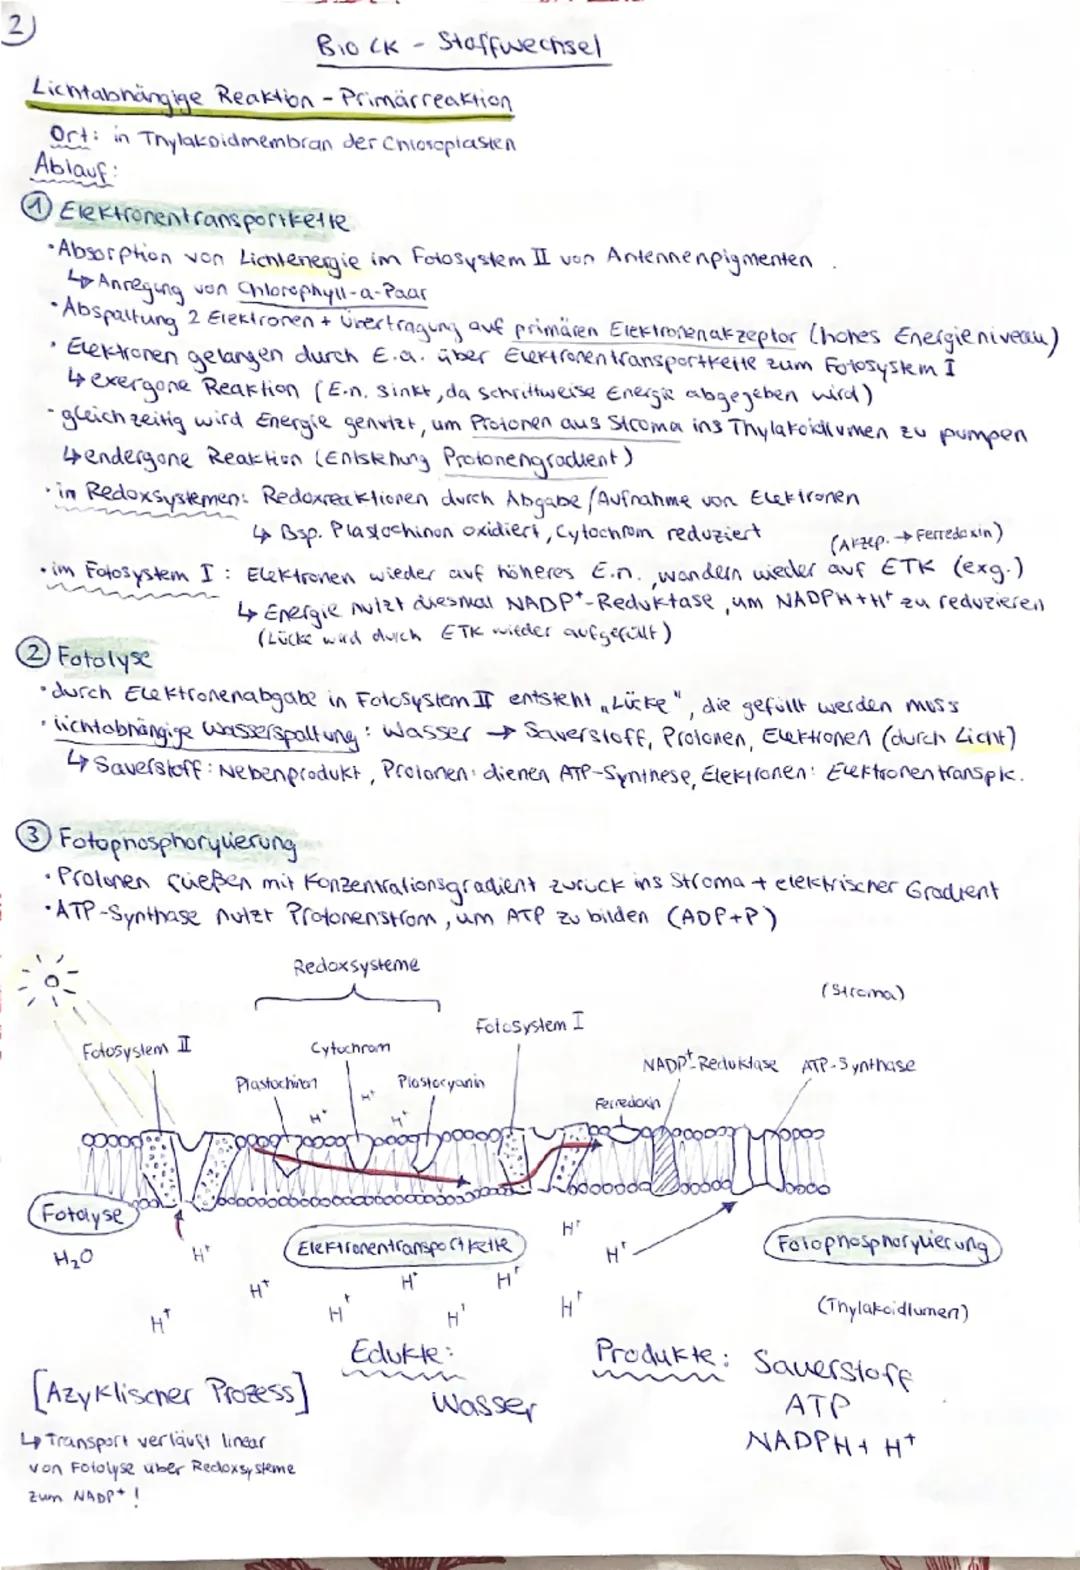 2)
Bio LK - Stoffwechsel
Lichtabhängige Reaktion - Primärreaktion
Ort: in Thylakoidmembran der Chloroplasten
Ablauf:
① Elektronentransportkette
• Absorption von Lichtenergie im Fotosystem II von Antennenpigmenten .
↳ Anregung von Chlorophyll-a-Paar
• Abspaltung 2 Elektronen + Übertragung auf primären Elektronenakzeptor (hohes Energieniveau)
• Elektronen gelangen durch E.a. über Elektronentransportkette zum Fotosystem I
↳ exergone Reaktion (E.n. sinkt, da schrittweise Energie abgegeben wird)
• gleichzeitig wird Energie genutzt, um Protonen aus Stroma ins Thylakoidlumen zu pumpen
↳ endergone Reaktion (Entstehung Protonengradient)
• in Redoxsystemen: Redoxreaktionen durch Abgabe/Aufnahme von Elektronen
↳ Bsp. Plastochinon oxidiert, Cytochrom reduziert
(Akzep. → Ferredoxin)
• im Fotosystem I: Elektronen wieder auf höheres E.n., wandern wieder auf ETK (exg.)
↳ Energie nutzt diesmal NADP⁺-Reduktase, um NADPH+H⁺ zu reduzieren
(Lücke wird durch ETK wieder aufgefüllt)
② Fotolyse
• durch Elektronenabgabe in Fotosystem II entsteht „Lücke", die gefüllt werden muss
• lichtabhängige Wasserspaltung: Wasser → Sauerstoff, Protonen, Elektronen (durch Licht)
↳ Sauerstoff: Nebenprodukt, Protonen: dienen ATP-Synthese, Elektronen: Elektronentranspk.
③ Fotophosphorylierung
• Protonen fließen mit Konzentrationsgradient zurück ins Stroma + elektrischer Gradient
• ATP-Synthase nutzt Protonenstrom, um ATP zu bilden (ADP+P)
Redoxsysteme
(Stroma)
Fotosystem I
Fotosystem II
Cytochrom
NADP⁺-Reduktase ATP-Synthase
Plastochinon
Plastocyanin
H⁺
Ferredoxin
H⁺ H⁺
Fotolyse
H₂O
H⁺
Elektronentransportkette
H⁺
H⁺
Fotophosphorylierung
H⁺ H⁺ H⁺
H⁺ H⁺ H⁺ H⁺
(Thylakoidlumen)
Edukte:
Wasser
Produkte: Sauerstoff
ATP
NADPH + H⁺
[Azyklischer Prozess]
↳ Transport verläuft linear
von Fotolyse über Redoxsysteme
zum NADP⁺!